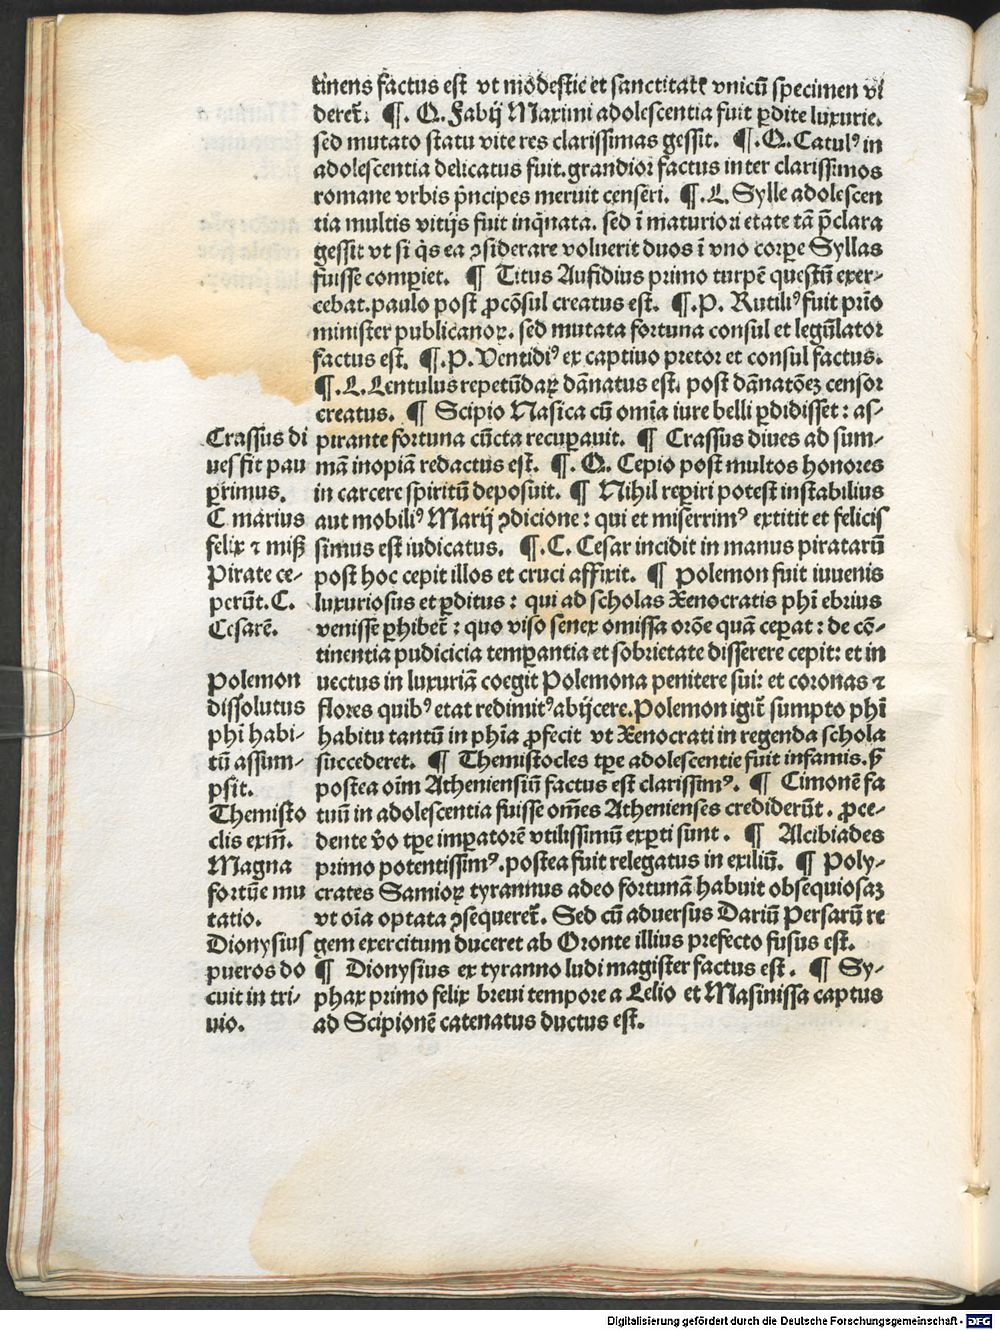 tinens factus est vt modestie et sanctitatē vnicū specimen vi
deret̄. ¶. Q. Fabij Maximi adolescentia fuit ꝑdite luxurie.
sed mutato statu vite res clarissimas gessit. ¶. Q. Catulꝰ in
adolescentia delicatus fuit. grandior factus inter clarissimos
romane vrbis p̄ncipes meruit censeri. ¶. L. Sylle adolescen
tia multis vitijs fuit inq̄nata. sed ī maturiori etate tā p̄clara
gessit vt si q̄s ea ꝯsiderare voluerit duos ī vno corꝑe Syllas
fuisse comꝑiet. ¶ Titus Aufidius primo turpē questū exer-
cebat. paulo post ꝓcōsul creatus est. ¶. P. Rutiliꝰ fuit prīo
minister publicanoꝝ. sed mutata fortuna consul et legūlator
factus est. ¶. P. Ventidiꝰ ex captiuo pretor et consul factus.
¶. L. Lentulus repetūdaꝝ dānatus est. post dānatōeꝫ censor
creatus. ¶ Scipio Nasica cū omīa iure belli ꝑdidisset: as-
pirante fortuna cūcta recuꝑauit. ¶ Crassus diues ad sum-
mā inopiā redactus est. ¶. Q. Cepio post multos honores
in carcere spiritū deposuit. ¶ Nihil reꝑiri potest instabilius
aut mobiliꝰ Marij ꝯdicione: qui et miserrimꝰ extitit et felicis
simus est iudicatus. ¶. C. Cesar incidit in manus piratarū
post hoc cepit illos et cruci affixit. ¶ Polemon fuit iuuenis
luxuriosus et ꝑditus: qui ad scholas Xenocratis phī ebrius
venisse ꝑhibet̄: quo viso senex omissa orōe quā ceꝑat: de cō-
tinentia pudicicia temꝑantia et sobrietate disserere cepit: et in
uectus in luxuriā coegit Polemona penitere sui: et coronas ⁊
flores quibꝰ etat redimitꝰ abijcere. Polemon igit̄ sumpto phī
habitu tantū in phīa ꝓfecit vt Xenocrati in regenda schola
succederet. ¶ Themistocles tꝑe adolescentie fuit infamis. sꝫ
postea oīm Atheniensiū factus est clarissimꝰ. ¶ Cimonē fa
tuū in adolescentia fuisse om̄es Athenienses crediderūt. ꝓce-
dente v̄o tꝑe imꝑatorē vtilissimū exꝑti sunt. ¶ Alcibiades
primo potentissimꝰ. postea fuit relegatus in exiliū. ¶ Poly-
crates Samioꝝ tyrannus adeo fortunā habuit obsequiosaꝫ
vt oīa optata ꝯsequeret̄. Sed cū aduersus Dariū Persarū re
gem exercitum duceret ab Oronte illius prefecto fusus est.
¶ Dionysius ex tyranno ludi magister factus est. ¶ Sy-
phax primo felix breui tempore a Lelio et Masinissa captus
ad Scipionē catenatus ductus est.
Crassus di
ues fit pau
ꝑrimus.
C marius
felix ⁊ miß
Pirate ce-
perūt. C.
Cesarē.
Polemon
dissolutus
phī habi-
tū assum-
psit.
Themisto
clis exm̄.
Magna
fortūe mu
tatio.
Dionysius
pueros do
cuit in tri-
uio.
Digitalisierung gefördert durch die Deutsche Forschungsgemeinschaft - DFG